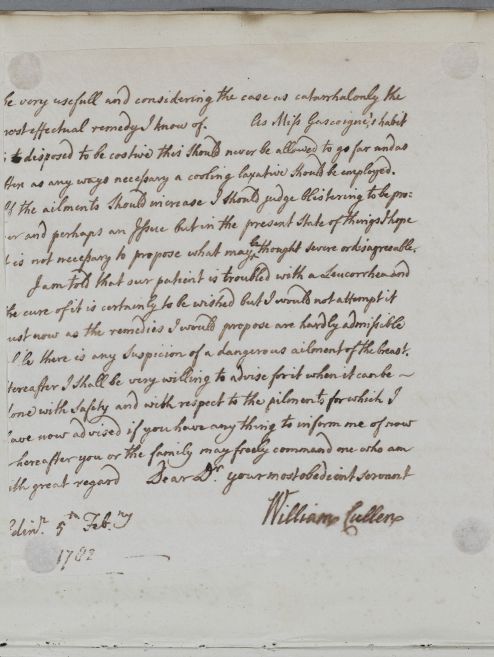 be very usefull and considering the case as catarrhal only the
most effectual remedy I know of. As Miss Gascoigne's habit
is disposed to be costive this should never be allowed to go far and as
often as any ways necessary a cooling laxative should be employed.
If the ailments should increase I should judge blistering to be pro:
per and perhaps an Issue but in the present state of things I hope
it is not necessary to propose what may be thought severe or disagreeable.
I am told that our patient is troubled with a Leucorrhea and
the cure of it is certainly to be wished but I would not attempt it
just now as the remedies I would propose are hardly admissible
while there is any suspicion of a dangerous ailment of the breast.
Hereafter I shall be very willing to advise for it when it can be ~
done with safety and with respect to the ailments for which I
have now advised if you have any thing to inform me of now
or hereafter you or the family may freely command me who am
with great regard Dear Dr. your most obedient servant
William Cullen
Edinr. 5th Feb.ry
1782